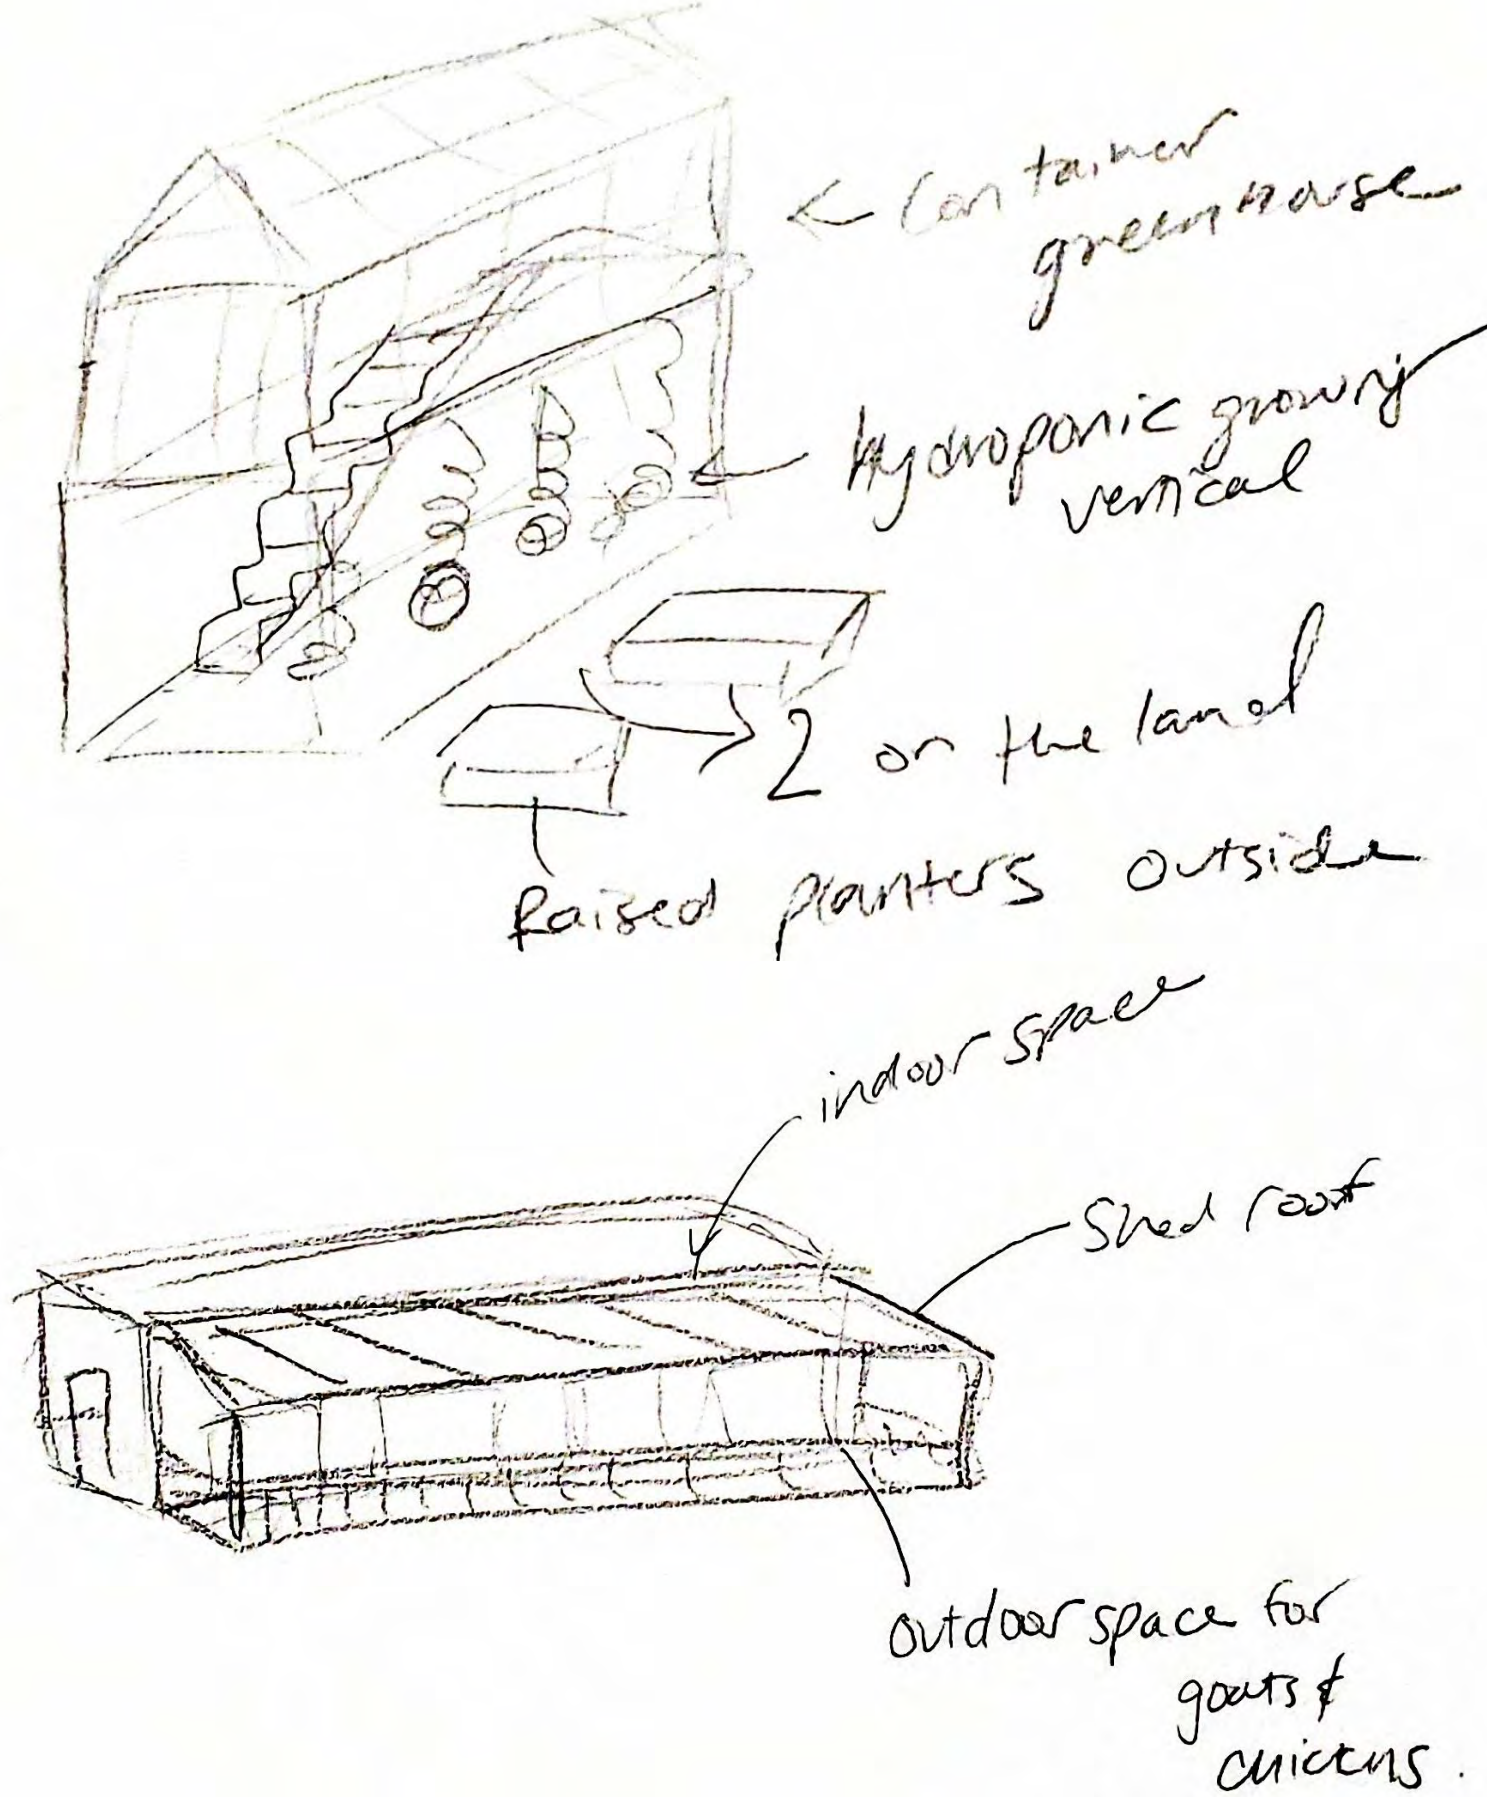 ← Container
greenhouse
← Hydroponic growing
vertical
2 on the land
Raised planters outside
indoor space
Shed roof
outdoor space for
goats &
chickens.